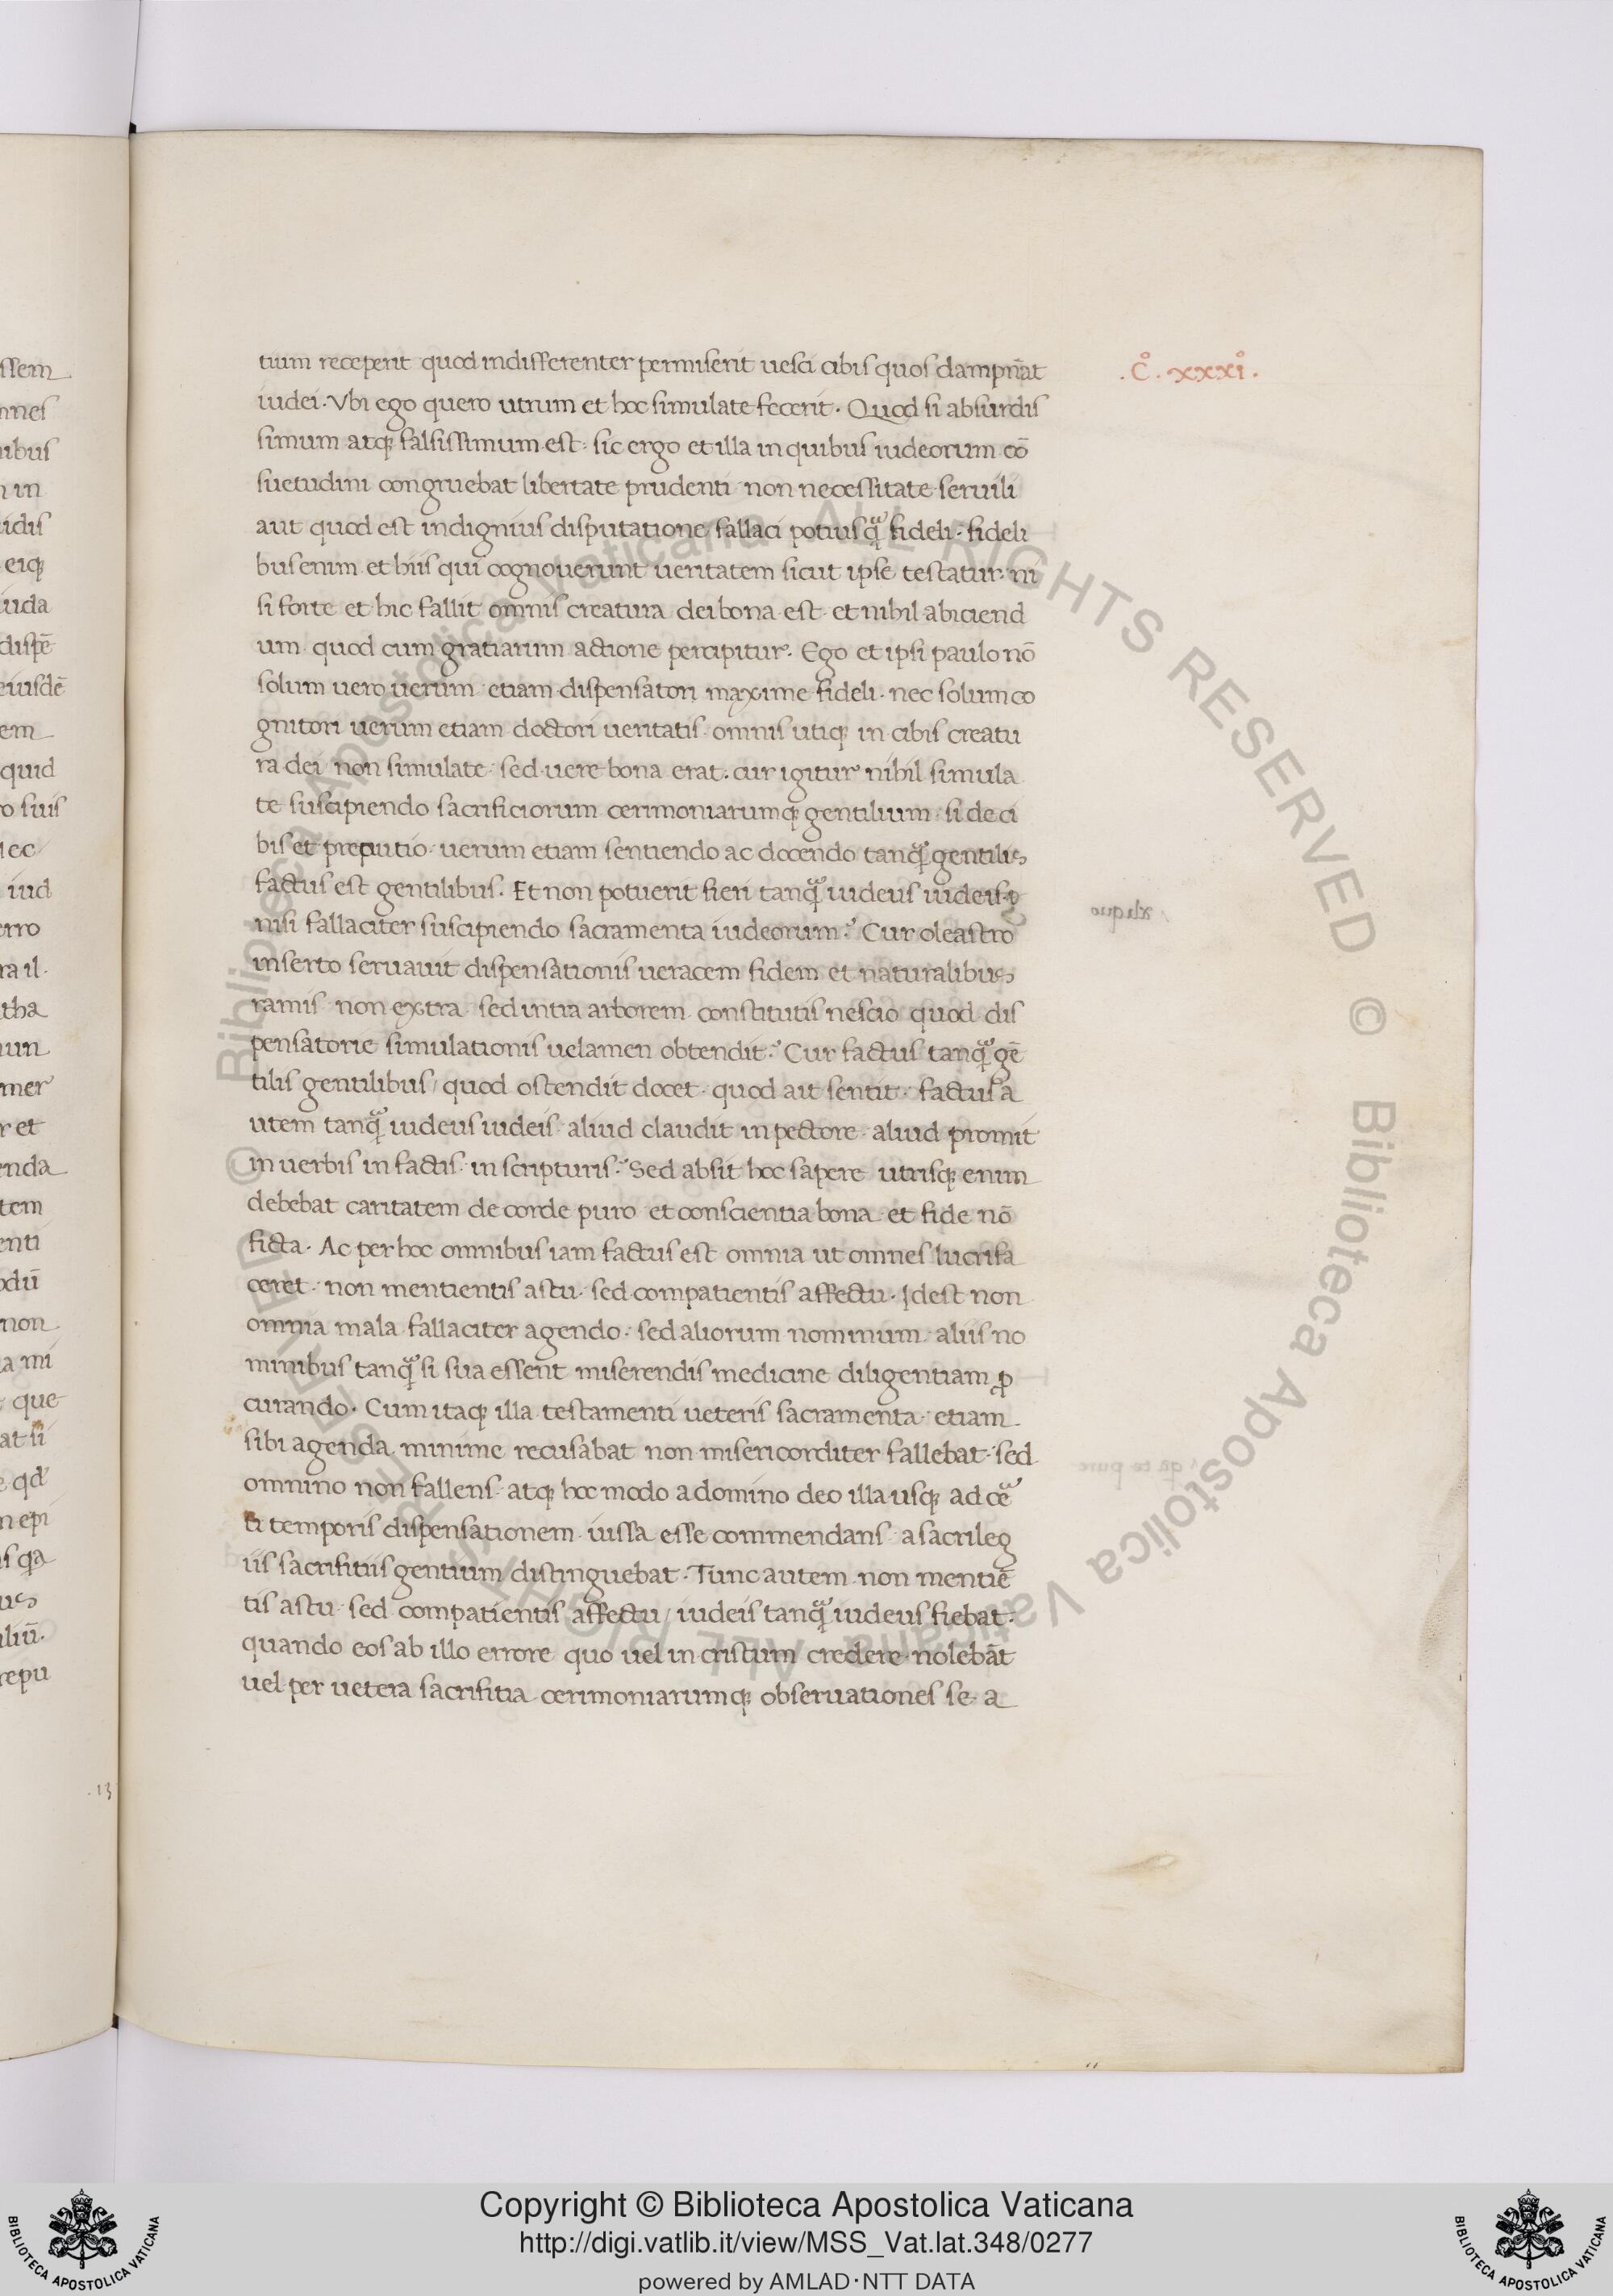 ssem
mnes
nibus
n in
idis
eiqꝫ
iuda
dispē
eiusdē
em
quid
o suis
ec
iud
erro
ra il
tha
un
mer
r et
enda
tem
enti
odū
non
a mi
que
at si
e qd
n epi
s qa
us
iliū.
repu
.13
tium receperit quod indifferenter permiserit uesci cibis quos dampnāt
iudei. Vbi ego quero utrum et hoc simulate fecerit. Quod si absurdis
simum atqꝫ falsissimum est: sic ergo et illa in quibus iudeorum cō
suetudini congruebat libertate prudenti non necessitate seruili
aut quod est indignius disputatione fallaci potiusqᷓ fideli. fideli
bus enim et hiis qui cognouerunt ueritatem sicut ipse testatur. ni
si forte et hic fallit omnis creatura dei bona est et nihil abiciend
um quod cum gratiarum actione percipitur. Ego et ipsi paulo nō
solum uero uerum etiam dispensatori maxime fideli. nec solum co
gnitori uerum etiam doctori ueritatis omnis utiqꝫ in cibis creatu
ra dei non simulate sed uere bona erat. cur igitur nihil simula
te suscipiendo sacrificiorum cerimoniarumqꝫ gentilium si de ci
bis et preputio uerum etiam sentiendo ac docendo tanqᷓ gentilis
factus est gentilibus. Et non potuerit fieri tanqᷓ iudeus iudeis
nisi fallaciter suscipiendo sacramenta iudeorum? Cur oleastro
inserto seruauit dispensationis ueracem fidem et naturalibus
ramis non extra sed intra arborem constitutis nescio quod dis
pensatorie simulationis uelamen obtendit? Cur factus tanqᷓ gē
tilis gentilibus / quod ostendit docet quod ait sentit factus a
utem tanqᷓ iudeus iudeis aliud claudit in pectore aliud promit
in uerbis in factis in scripturis? Sed absit hoc sapere utrisqꝫ enim
debebat caritatem de corde puro et conscientia bona et fide nō
ficta. Ac per hoc omnibus iam factus est omnia ut omnes lucrifa
ceret. non mentientis astu sed compatientis affectu. Idest non
omnia mala fallaciter agendo. sed aliorum nominum aliis no
minibus tanqᷓ si sua essent miserendis medicine diligentiam ꝓ
curando. Cum itaqꝫ illa testamenti ueteris sacramenta etiam
sibi agenda minime recusabat non misericorditer fallebat sed
omnino non fallens atqꝫ hoc modo a domino deo illa usqꝫ ad ceᷓ
ti temporis dispensationem iussa esse commendans a sacrileg
iis sacrifitiis gentium distinguebat. Tunc autem non mentiē
tis astu sed compatientis affectu / iudeis tanqᷓ iudeus fiebat.
quando eos ab illo errore quo uel in cristum credere nolebāt
uel per uetera sacrifitia cerimoniarumqꝫ obseruationes se a
.C°. xxxi°.
© Biblioteca Apostolica Vaticana ALL RIGHTS RESERVED
© Biblioteca Apostolica Vaticana ALL RIGHTS RESERVED
Copyright © Biblioteca Apostolica Vaticana
http://digi.vatlib.it/view/MSS_Vat.lat.348/0277
powered by AMLAD·NTT DATA
BIBLIOTECA APOSTOLICA VATICANA
BIBLIOTECA APOSTOLICA VATICANA